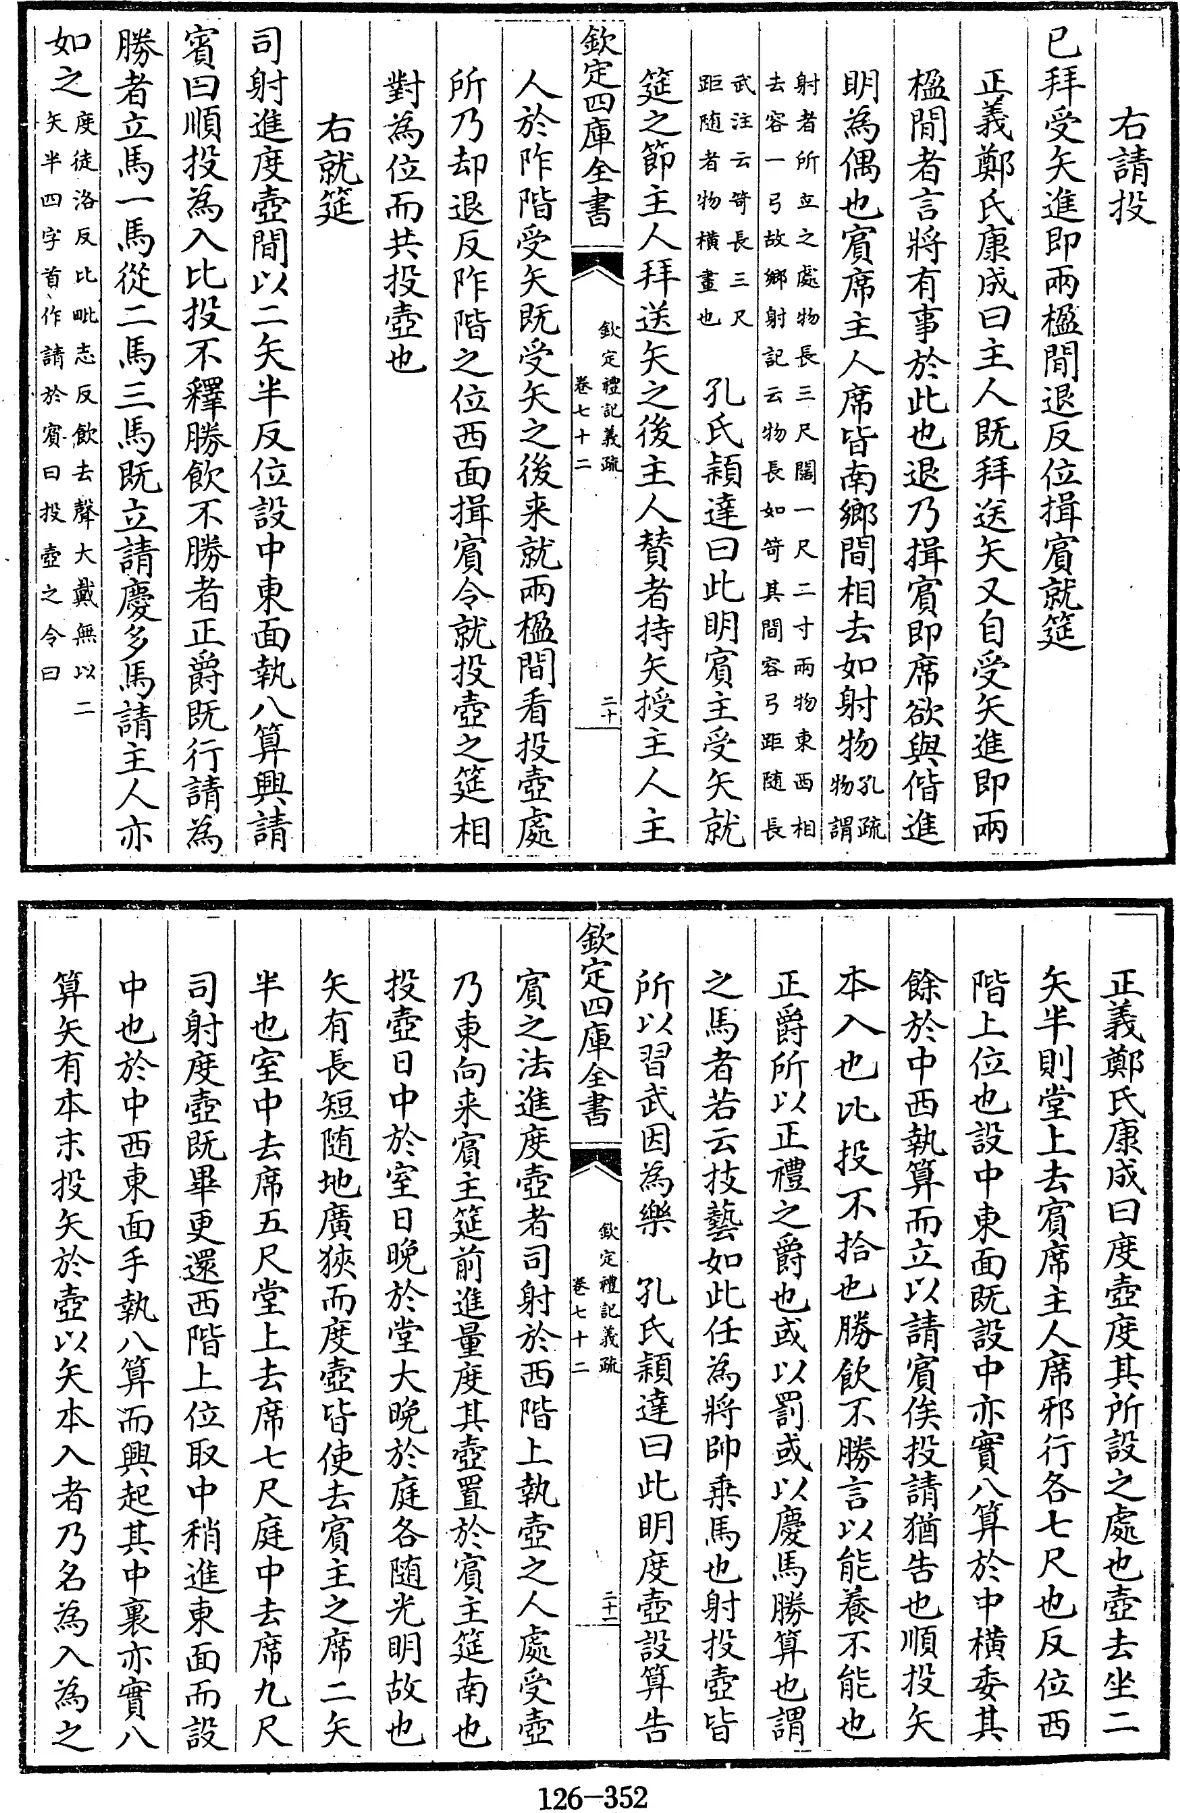 右請投
已拜受矢進即兩楹間退反位揖賔就筵
正義鄭氏康成曰主人既拜送矢又自受矢進即兩
楹間者言將有事於此也退乃揖賔即席欲與偕進
明為偶也賔席主人席皆南鄉間相去如射物孔疏物謂
射者所立之處物長三尺闊一尺二寸兩物東西相
去容一弓故鄉射記云物長如笴其間容弓距随長
武注云笴長三尺
距随者物橫畫也　孔氏穎達曰此明賔主受矢就
筵之節主人拜送矢之後主人賛者持矢授主人主
欽定四庫全書
欽定禮記義疏
卷七十二
二十
人於阼階受矢既受矢之後来就兩楹間看投壺處
所乃却退反阼階之位西面揖賔令就投壺之筵相
對為位而共投壺也
右就筵
司射進度壺間以二矢半反位設中東面執八算興請
賔曰順投為入比投不釋勝飲不勝者正爵既行請為
勝者立馬一馬從二馬三馬既立請慶多馬請主人亦
如之度徒洛反比毗志反飲去聲大戴無以二
矢半四字首作請於賔曰投壺之令曰
正義鄭氏康成曰度壺度其所設之處也壺去坐二
矢半則堂上去賔席主人席邪行各七尺也反位西
階上位也設中東面既設中亦實八算於中横委其
餘於中西執算而立以請賔俟投請猶告也順投矢
本入也比投不拾也勝飲不勝言以能養不能也
正爵所以正禮之爵也或以罰或以慶馬勝算也謂
之馬者若云技藝如此任為將帥乗馬也射投壺皆
所以習武因為樂　孔氏穎達曰此明度壺設算告
欽定四庫全書
欽定禮記義疏
卷七十二
二十一
賔之法進度壺者司射於西階上執壺之人處受壺
乃東向来賔主筵前進量度其壺置於賔主筵南也
投壺日中於室日晚於堂大晚於庭各随光明故也
矢有長短随地廣狹而度壺皆使去賔主之席二矢
半也室中去席五尺堂上去席七尺庭中去席九尺
司射度壺既畢更還西階上位取中稍進東面而設
中也於中西東面手執八算而興起其中裏亦實八
算矢有本末投矢於壺以矢本入者乃名為入為之
126-352